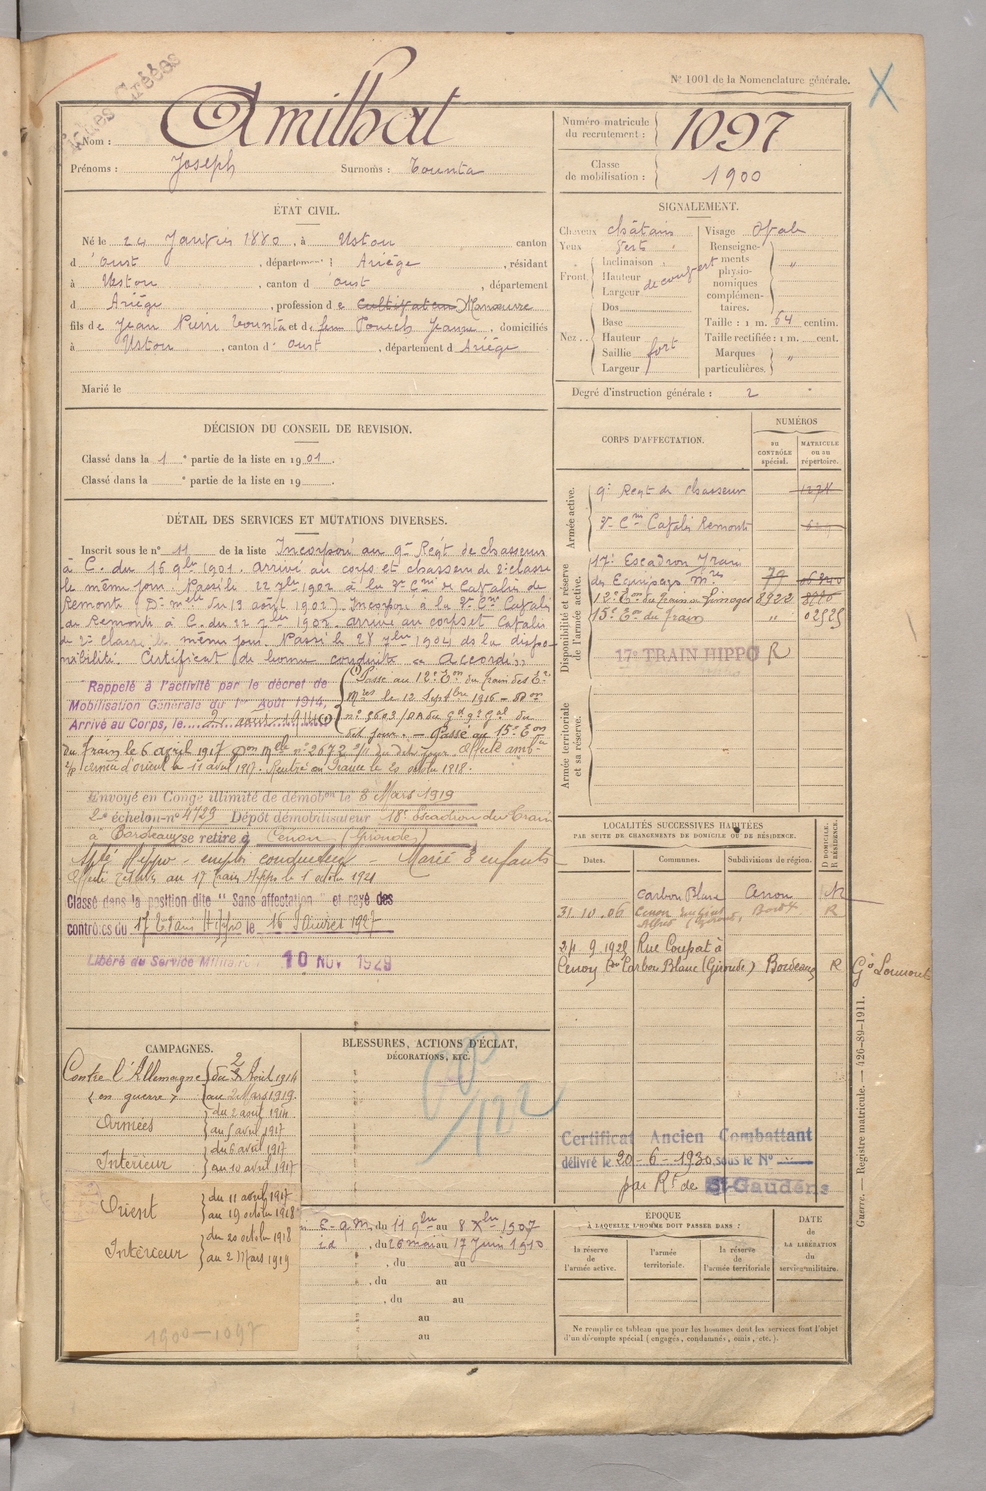 N° 1001 de la Nomenclature générale.
X
Fiches Créées
Nom : Amilhat
Prénoms : Joseph Surnoms : Tounta
Numéro matricule du recrutement : 1097
Classe de mobilisation : 1900
ÉTAT CIVIL.
Né le 24 Janvier 1880, à Ustou, canton
d'Oust, département d Ariège, résidant
à Ustou, canton d'Oust, département
d Ariège, profession de Cultivateur Manoeuvre
fils de Jean Pierre Tounta et de feue Ponech Jeanne, domiciliés
à Ustou, canton d'Oust, département d Ariège
Marié le
SIGNALEMENT.
Cheveux châtains
Yeux verts
Front Inclinaison
Hauteur
Largeur découvert
Nez Dos
Base
Hauteur
Saillie fort
Largeur
Visage Ovale
Renseignements physionomiques complémentaires. "
Taille : 1 m. 64 centim.
Taille rectifiée : 1 m. cent.
Marques particulières. "
Degré d'instruction générale : 2
DÉCISION DU CONSEIL DE REVISION.
Classé dans la 1e partie de la liste en 1901.
Classé dans la e partie de la liste en 19
DÉTAIL DES SERVICES ET MUTATIONS DIVERSES.
Inscrit sous le n° 11 de la liste Incorporé au 9e Régt de chasseurs
à C. du 16 9bre 1901. arrivé au corps et chasseur de 2e classe
le même jour. Passé le 22 7bre 1902 à la 3e Cie de Cavaliers de
Remonte (D. mlle du 19 août 1902). Incorporé à la 3e Cie Cavaliers
de Remonte à C. du 22 7bre 1902. arrivé au corps et Cavalier
de 2e classe le même jour. Passé le 28 7bre 1904 ds la dispo-
nibilité. Certificat de bonne conduite " Accordé "
Rappelé à l'activité par le décret de
Mobilisation Générale du 1er Août 1914,
Arrivé au Corps, le 2 août 1914
Passé au 12e Eon du Train des Eq.
Mres le 12 Septbre 1916 - 
du jour. - Passé au 15e Eon
du Train le 6 avril 1917 n° 2672 du dit jour
armée d'orient le 11 avril 1917. Rentré en France le 20 octobre 1918.
Envoyé en Congé illimité de démobon le 3 Mars 1919
2e échelon n° 4729 Dépôt démobilisateur 18e Escadron du Train
à Bordeaux se retire à Cenon (Gironde)
Apte Hippo - emploi conducteur - Marié 3 enfants
Affecté au 17 Train Hippo le 1 octobre 1921
Classé dans la position dite " Sans affectation " et rayé des
contrôles du 17 Train Hippo le 16 Janvier 1927
Libéré du Service Militaire 10 NOV 1928
CORPS D'AFFECTATION.
NUMÉROS
au contrôle spécial.
matricule ou au répertoire.
Armée active.
9e Régt de chasseurs
3e Cie Cavaliers Remonte
Disponibilité et réserve de l'armée active.
17e Escadron Train
des Equipages Mres
12e Eon du Train de Limoges 8922
15e Eon du Train " 02525
17e TRAIN HIPPO R
Armée territoriale et sa réserve.
LOCALITÉS SUCCESSIVES HABITÉES
PAR SUITE DE CHANGEMENTS DE DOMICILE OU DE RÉSIDENCE.
Dates. Communes. Subdivisions de région. D DOMICILE. R RÉSIDENCE.
Carbon Blanc
31.10.06 Cenon Bordx R
24 9.1928 Rue Coupat à
Cenon Con Carbon Blanc (Gironde) Bordeaux R
CAMPAGNES.
Contre l'Allemagne du 2 Août 1914
(en guerre) au 2 Mars 1919.
Armées du 2 août 1914
au 5 avril 1917
Intérieur du 6 avril 1917
au 10 avril 1917
Orient du 11 avril 1917
au 19 octobre 1918
Intérieur du 20 octobre 1918
au 2 Mars 1919
1900-1097
BLESSURES, ACTIONS D'ÉCLAT,
DÉCORATIONS, ETC.
E.q.M., du 11 9bre au 8 Xbre 1907
id, du 26 mai au 17 Juin 1910
, du au
, du au
, du au
au
au
Certificat Ancien Combattant
délivré le 20-6-1930 sous le N°
par Rt de St-Gaudens
ÉPOQUE
À LAQUELLE L'HOMME DOIT PASSER DANS :
la réserve de l'armée active.
l'armée territoriale.
la réserve de l'armée territoriale
DATE de LA LIBÉRATION du service militaire.
Ne remplir ce tableau que pour les hommes dont les services font l'objet
d'un décompte spécial (engagés, condamnés, omis, etc.).
Guerre. — Registre matricule. — 426-89-1911.